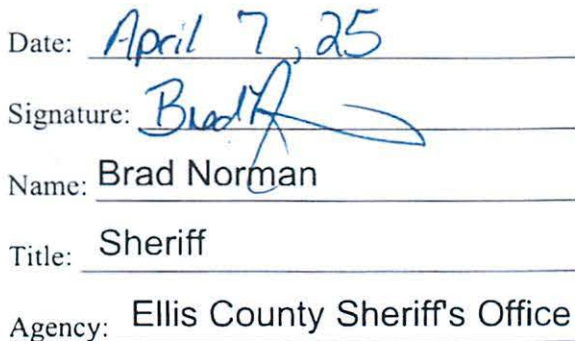 Date: April 7, 25
Signature: Brad
Name: Brad Norman
Title: Sheriff
Agency: Ellis County Sheriff's Office